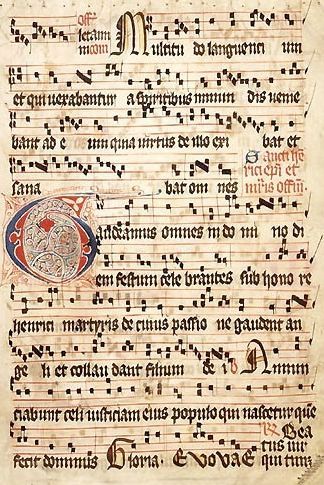 off̄
letam
Multitudo languenti um
et qui vexabantur a spiritibus inmun dis venie
bant ad e um quia virtus de illo exi bat et
sana bat om nes
Sancti he
rici epī et
mr̄is offm̄
Gaudeamus omnes in do mi no di
em festum cele brantes sub hono re
henrici martyris de cuius passio ne gaudent an
ge li et collau dant filium de i Annun
ciabunt celi iusticiam eius populo qui nascetur que
fecit dominus Gloria. Evovae
Bea
tus vir
qui tim